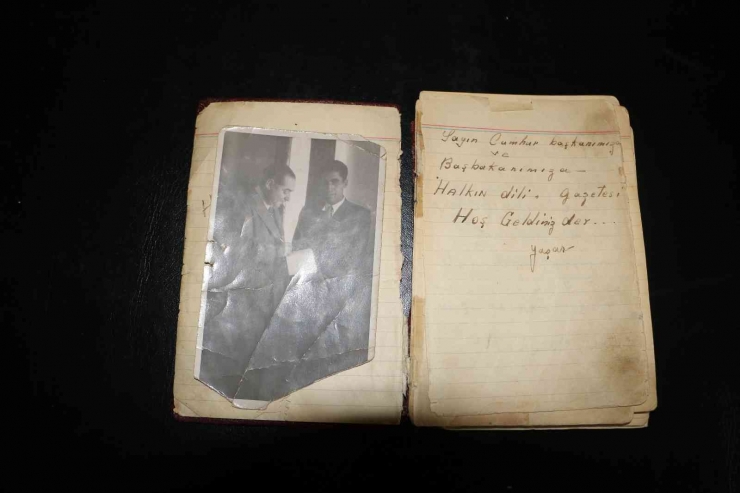 Sayın Cumhur başkanımıza
ve
Başbakanımıza -
"Halkın dili. gazetesi
Hoş Geldiniz der...
Yaşar